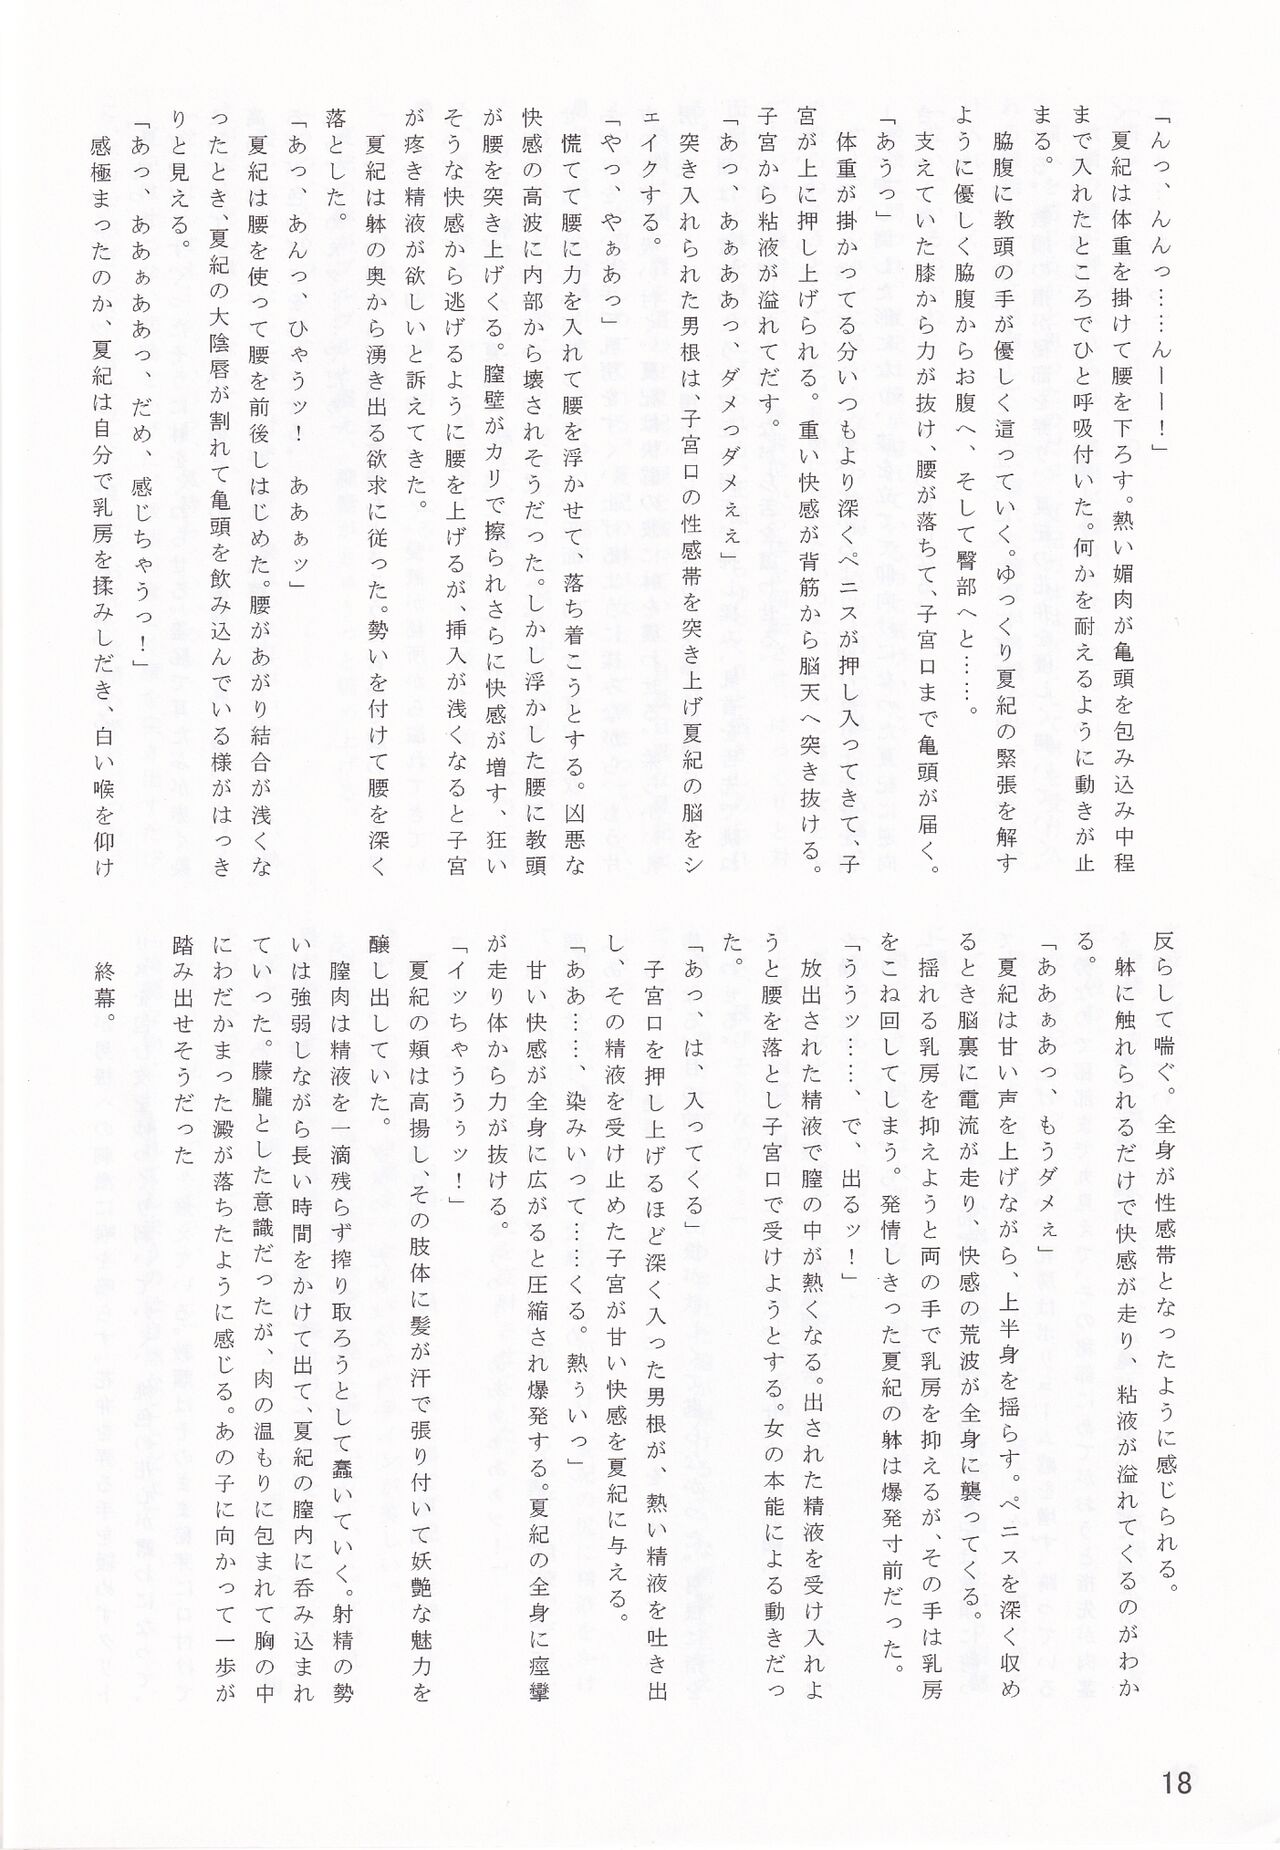 「んっ、んんっ……んーー！」
　夏紀は体重を掛けて腰を下ろす。熱い媚肉が亀頭を包み込み中程
まで入れたところでひと呼吸付いた。何かを耐えるように動きが止
まる。
　脇腹に教頭の手が優しく這っていく。ゆっくり夏紀の緊張を解す
ように優しく脇腹からお腹へ、そして臀部へと……。
　支えていた膝から力が抜け、腰が落ちて、子宮口まで亀頭が届く。
「あうっ」
　体重が掛かってる分いつもより深くペニスが押し入ってきて、子
宮が上に押し上げられる。重い快感が背筋から脳天へ突き抜ける。
子宮から粘液が溢れてだす。
「あっ、あぁああっ、ダメっダメぇぇ」
　突き入れられた男根は、子宮口の性感帯を突き上げ夏紀の脳をシ
ェイクする。
「やっ、やぁあっ」
　慌てて腰に力を入れて腰を浮かせて、落ち着こうとする。凶悪な
快感の高波に内部から壊されそうだった。しかし浮かした腰に教頭
が腰を突き上げくる。膣壁がカリで擦られさらに快感が増す、狂い
そうな快感から逃げるように腰を上げるが、挿入が浅くなると子宮
が疼き精液が欲しいと訴えてきた。
　夏紀は躰の奥から湧き出る欲求に従った。勢いを付けて腰を深く
落とした。
「あっ、あんっ、ひゃうッ！　ああぁッ」
　夏紀は腰を使って腰を前後しはじめた。腰があがり結合が浅くな
ったとき、夏紀の大陰唇が割れて亀頭を飲み込んでいる様がはっき
りと見える。
「あっ、ああぁああっ、だめ、感じちゃうっ！」
　感極まったのか、夏紀は自分で乳房を揉みしだき、白い喉を仰け
反らして喘ぐ。全身が性感帯となったように感じられる。
　躰に触れられるだけで快感が走り、粘液が溢れてくるのがわか
る。
「ああぁあっ、もうダメぇ」
　夏紀は甘い声を上げながら、上半身を揺らす。ペニスを深く収め
るとき脳裏に電流が走り、快感の荒波が全身に襲ってくる。
　揺れる乳房を抑えようと両の手で乳房を抑えるが、その手は乳房
をこね回してしまう。発情しきった夏紀の躰は爆発寸前だった。
「ううッ……、で、出るッ！」
　放出された精液で膣の中が熱くなる。出された精液を受け入れよ
うと腰を落とし子宮口で受けようとする。女の本能による動きだっ
た。
「あっ、は、入ってくる」
　子宮口を押し上げるほど深く入った男根が、熱い精液を吐き出
し、その精液を受け止めた子宮が甘い快感を夏紀に与える。
「ああ……、染みいって……くる。熱ぅいっ」
　甘い快感が全身に広がると圧縮され爆発する。夏紀の全身に痙攣
が走り体から力が抜ける。
「イッちゃううぅッ！」
　夏紀の頬は高揚し、その肢体に髪が汗で張り付いて妖艶な魅力を
醸し出していた。
　膣肉は精液を一滴残らず搾り取ろうとして蠢いていく。射精の勢
いは強弱しながら長い時間をかけて出て、夏紀の膣内に呑み込まれ
ていった。朦朧とした意識だったが、肉の温もりに包まれて胸の中
にわだかまった澱が落ちたように感じる。あの子に向かって一歩が
踏み出せそうだった
　終幕。
18